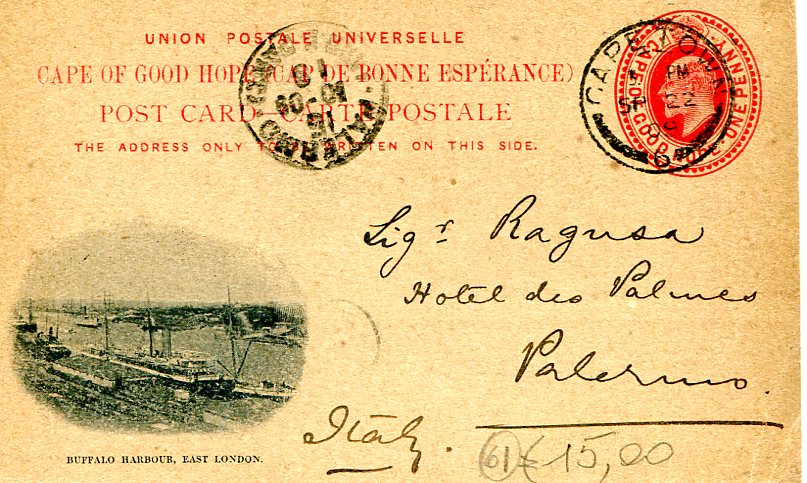 UNION POSTALE UNIVERSELLE
CAPE OF GOOD HOPE (CAP DE BONNE ESPÉRANCE)
POST CARD–CARTE POSTALE
THE ADDRESS ONLY TO BE WRITTEN ON THIS SIDE.
PALERMO
CAPE TOWN
PM
SP 22
6
CAPE OF GOOD HOPE
ONE PENNY
Sigr Ragusa
Hotel des Palmes
Palermo.
Italy.
BUFFALO HARBOUR, EAST LONDON.
61 € 15,00